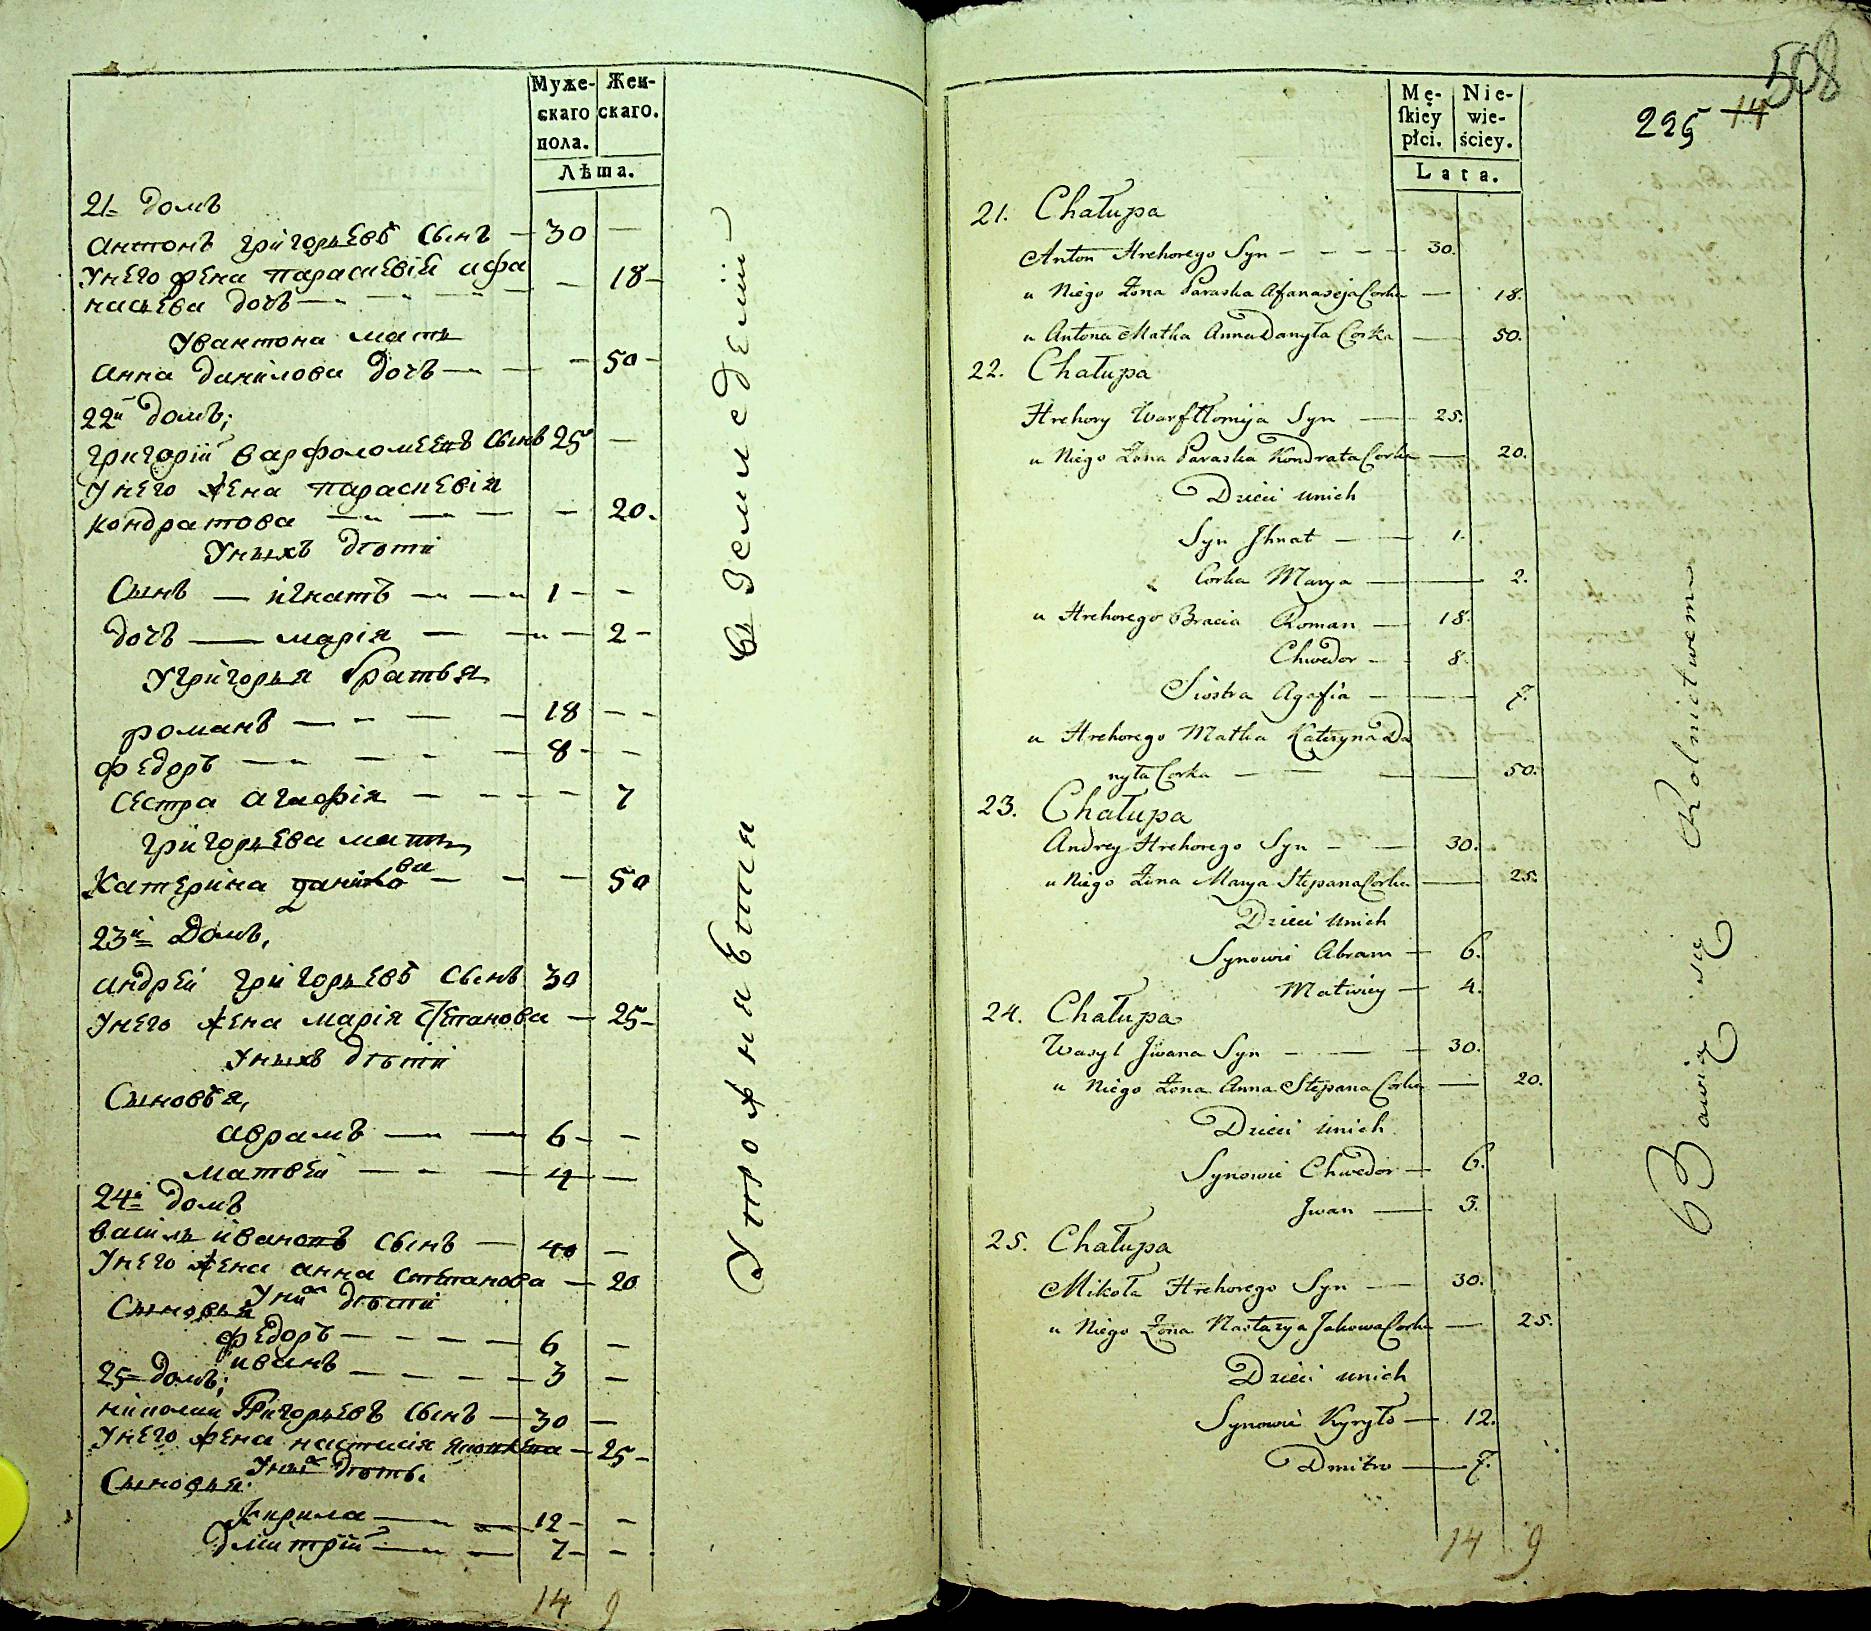 Муже- Жен-
скаго скаго.
пола.
Лѣта.
21 домъ
антонъ григорьевъ сынъ — 30 —
унего жена параскевия афа
насьева дочь — — 18 —
увантона мать
анна данилова дочь — — 50 —
22й домъ;
григорий варфоломеевъ сынъ 25 —
унего жена параскевия
кондратова — — — 20.
унихъ дѣти
сынъ — игнатъ — — 1 — —
дочь — мария — — 2 —
угригорья братья
романъ — — — 18 — —
федоръ — — — 8 — —
сестра агафия — — — 7
григорьева мать
катерина данилова — — — 50
23й домъ,
андрей григорьевъ сынъ 30
унего жена мария степанова — 25 —
унихъ дѣти
сыновья,
аврамъ — — 6 — —
матвей — — — 4 —
24й домъ
василь ивановъ сынъ — 40 —
унего жена анна степанова — 20
унихъ дѣти
сыновья
федоръ — — — — 6 —
иванъ — — — — 3 —
25 домъ;
николай григорьевъ сынъ — 30 —
унего жена настасия — 25 —
унихъ дѣти
сыновья
кирила — — — 12 — —
дмитрий — — — 7 — —
14 9
Упожняются въ земледелии
508
225 14
Mę- Nie-
ſkiey wie-
płci. ściey.
Lata.
21. Chałupa
Anton Hrehorego Syn — — — — 30.
u Niego Żona Paraska Afanaseja Corka — 18.
u Antona Matka Anna Danyła Corka — 50.
22. Chałupa
Hrehory Warfłłomija Syn — 25.
u Niego Żona Paraska Kondrata Corka — 20.
Dzieci unich
Syn Jhnat — 1.
Corka Marya — 2.
u Hrehorego Bracia Roman — 18.
Chwedor — 8.
Siostra Agafia — 7.
u Hrehorego Matka Katerzyna Da
nyła Corka — — — 50.
23. Chałupa
Andrey Hrehorego Syn — — 30.
u Niego Żona Marya Stepana Corka — 25.
Dzieci unich
Synowie Abram — 6.
Matwiey — 4.
24. Chałupa
Wasyl Jwana Syn — — — 30.
u Niego Żona Anna Stepana Corka — 20.
Dzieci unich
Synowie Chwedor — 6.
Jwan — 3.
25. Chałupa
Mikoła Hrehorego Syn — 30.
u Niego Żona Nastazya Jakowa Corka — 25.
Dzieci unich
Synowie Kyryło — 12.
Dmitro — 7.
14 9
Bawią się Rolnictwem